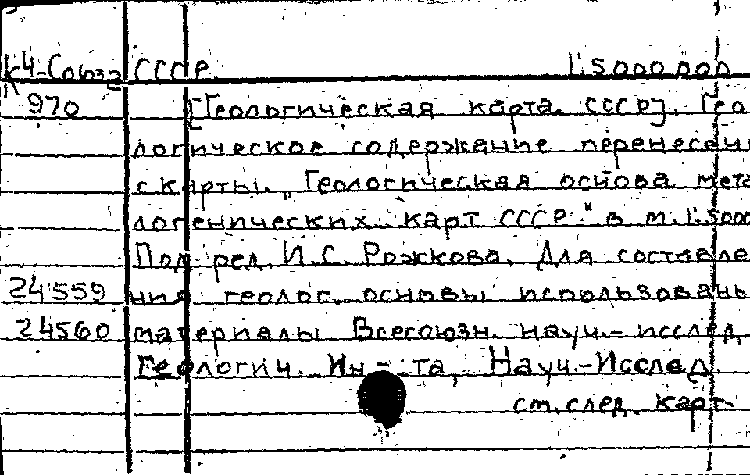 К4-Союз СССР 1:5000000
К
970 [Геологическая карта СССР]. Гео
логическое содержание перенесен
с карты „Геологическая основа мета
логенических карт СССР" в м. 1:5000
Под ред. И.С. Рожкова. Для составле
24559 ния геолог. основы использованы
24560 материалы Всесоюзн. науч.-исслед.
Геологич. Ин-та, Науч.-Исслед.
см. след. карт.